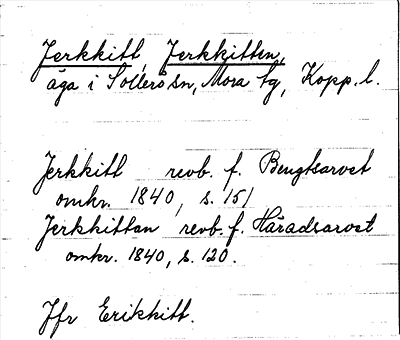 Jerkkitt, Jerkkitten,
äga i Sollerö sn, Mora tg, Kopp. l.
Jerkkitt revb. f. Bengtsarvet
omkr. 1840, s. 151
Jerkkittan revb. f. Häradsarvet
omkr. 1840, s. 120.
Jfr Erikkitt.